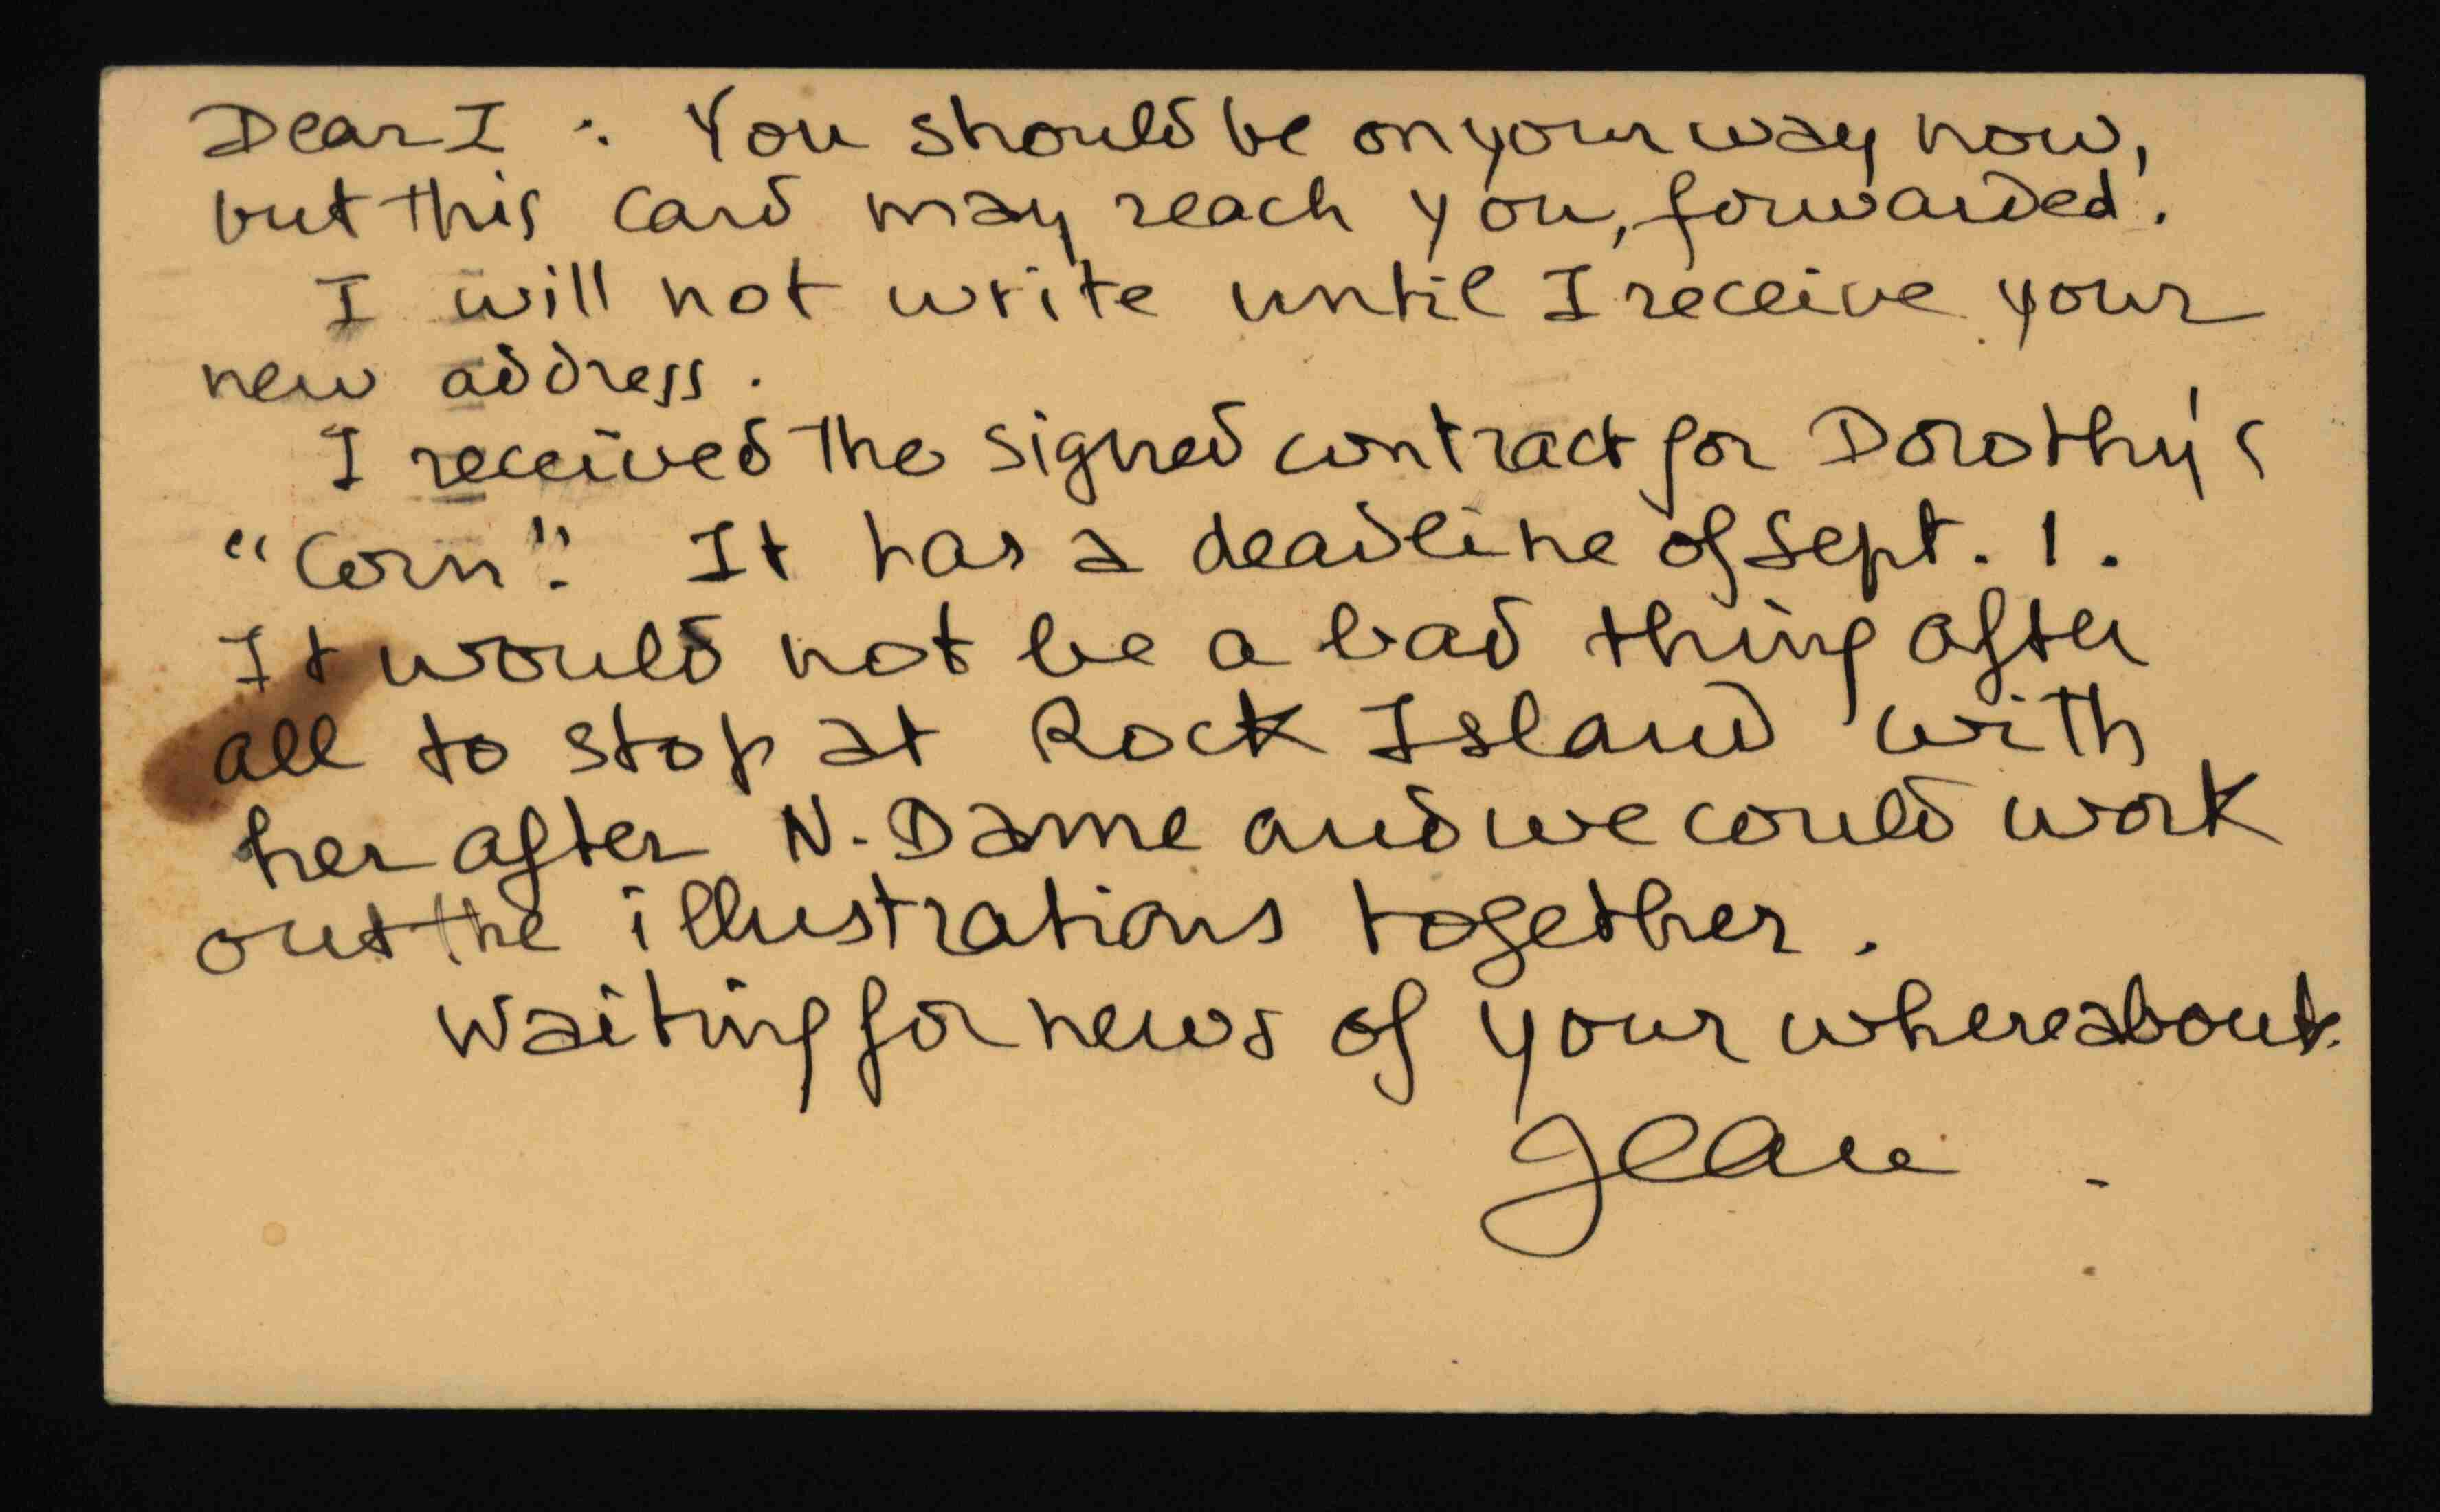 Dear I : You should be on your way now,
but this card may reach you, forwarded.
I will not write until I receive your
new address.
I received the signed contract for Dorothy's
"Corn". It has a deadline of Sept. 1.
It would not be a bad thing after
all to stop at Rock Island with
her after N. Dame and we could work
out the illustrations together.
Waiting for news of your whereabouts.
Jean